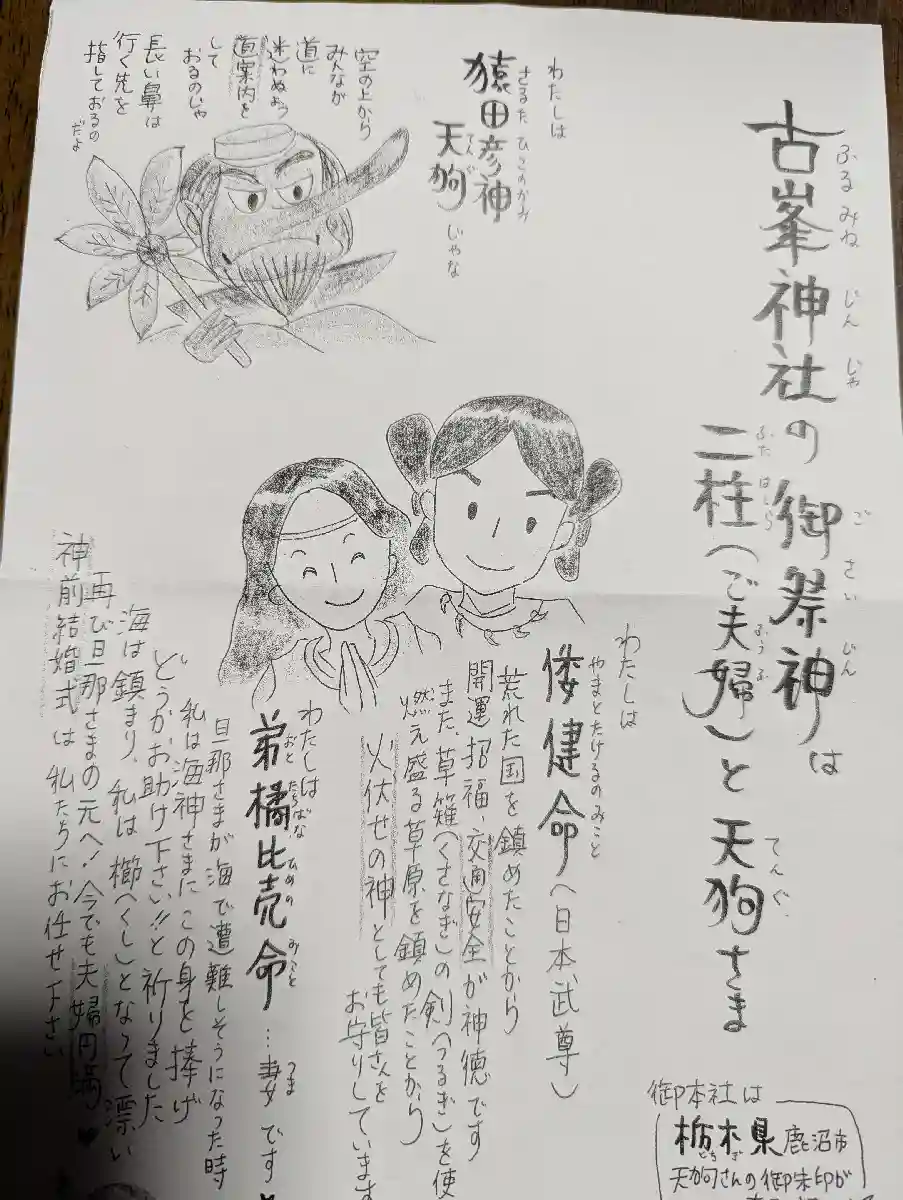 古峯神社の御祭神は
ふるみねじんじゃ ごさいじん
二柱(ご夫婦)と天狗さま
ふたはしら ふうふ てんぐ
御本社は
栃木県鹿沼市
とちぎ
天狗さんの御朱印が
わたしは
猿田彦神
さるたひこのかみ
天狗じゃな
てんぐ
空の上から
みんなが
道に
迷わぬよう
道案内を
して
おるのじゃ
長い鼻は
行く先を
指しておるの
だよ
わたしは
倭健命(日本武尊)
やまとたけるのみこと
荒れた国を鎮めたことから
開運招福、交通安全が神徳です
また、草薙(くさなぎ)の剣(つるぎ)を使
燃え盛る草原を鎮めたことから
火伏せの神としても皆さんを
お守りしています
わたしは
弟橘比売命…妻です
おとたちばなひめのみこと つま
旦那さまが海で遭難しそうになった時
私は海神さまにこの身を捧げ
どうかお助け下さい!!と祈りました
海は鎮まり、私は櫛(くし)となって漂い
再び旦那さまの元へ!今でも夫婦円満♥
神前結婚式は私たちにお任せ下さい